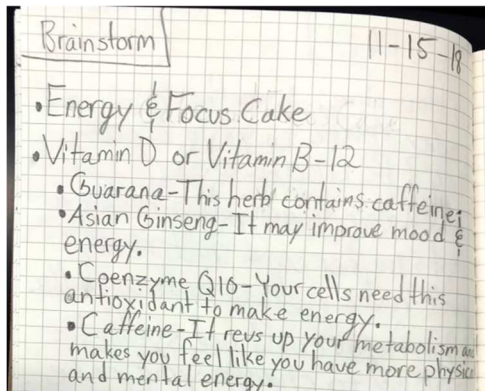 Brainstorm
11-15-18
• Energy & Focus Cake
• Vitamin D or Vitamin B-12
• Guarana-This herb contains caffeine;
• Asian Ginseng-It may improve mood &
energy.
• Coenzyme Q10-Your cells need this
antioxidant to make energy.
• Caffeine-It revs up your metabolism and
makes you feel like you have more physical
and mental energy.